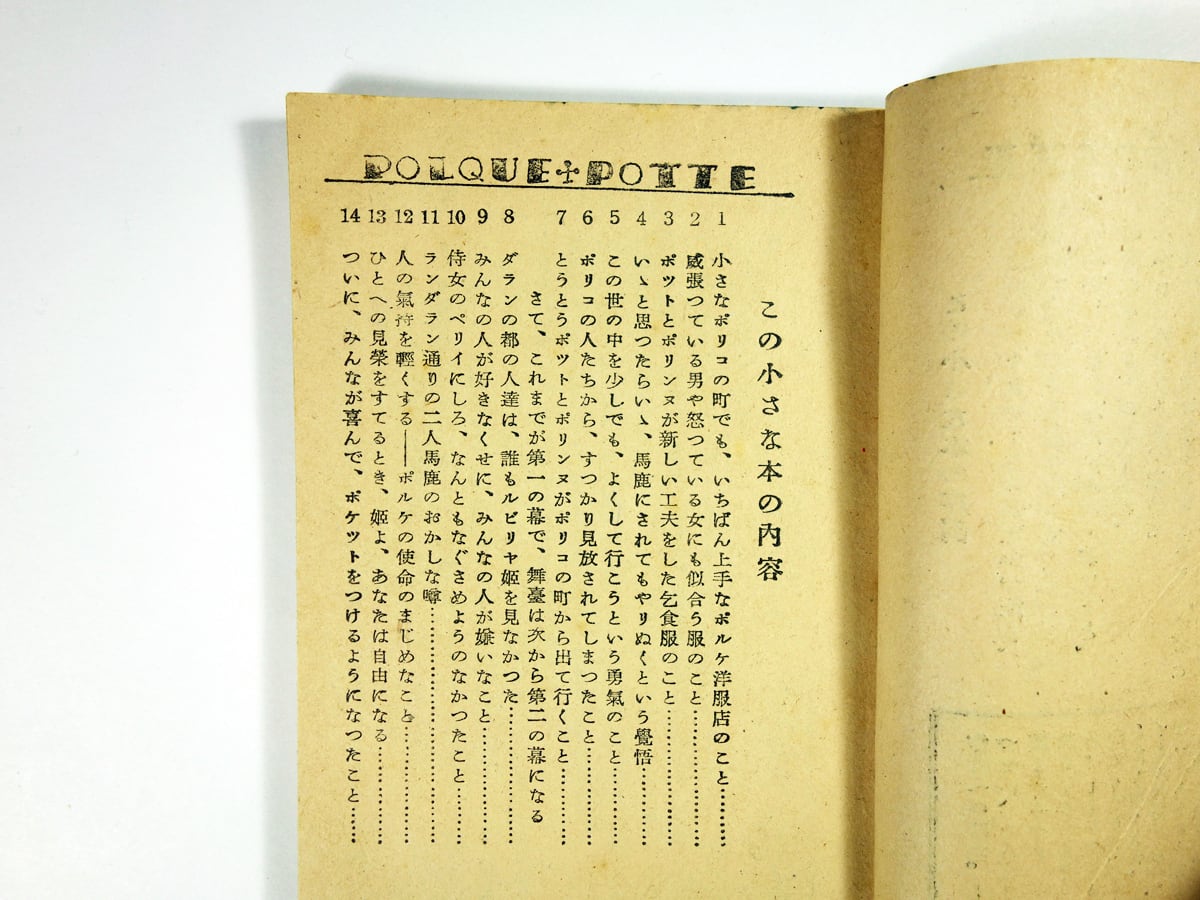 POLQUE✢POTTE
この小さな本の内容
1 小さなポリコの町でも、いちばん上手なポルケ洋服店のこと………
2 威張つている男や怒つている女にも似合う服のこと………………
3 ポツトとポリンヌが新しい工夫をした乞食服のこと………………
4 いゝと思つたらいゝ、馬鹿にされてもやりぬくという覺悟…………
5 この世の中を少しでも、よくして行こうという勇氣のこと…………
6 ポリコの人たちから、すつかり見放されてしまつたこと……………
7 とうとうポツトとポリンヌがポリコの町から出て行くこと…………
さて、これまでが第一の幕で、舞臺は次から第二の幕になる
8 ダランの都の人達は、誰もルビリヤ姫を見なかつた…………………
9 みんなの人が好きなくせに、みんなの人が嫌いなこと………………
10 侍女のペリイにしろ、なんともなぐさめようのなかつたこと………
11 ランダラン通りの二人馬鹿のおかしな噂………………………………
12 人の氣持を輕くする——ポルケの使命のまじめなこと………………
13 ひとへの見榮をすてるとき、姫よ、あなたは自由になる……………
14 ついに、みんなが喜んで、ポケツトをつけるようになつたこと……